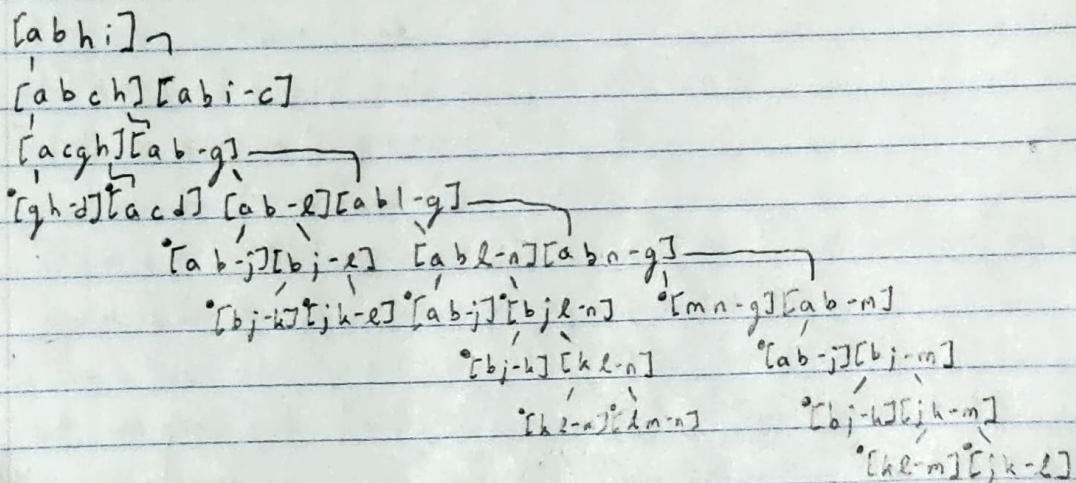 [a b h i]
[a b c h] [a b i - c]
[a c g h] [a b - g]
[g h - d] [a c d] [a b - l] [a b l - g]
[a b - j] [b j - l] [a b l - n] [a b n - g]
[b j - k] [j k - l] [a b - j] [b j l - n] [m n - g] [a b - m]
[b j - k] [k l - n] [a b - j] [b j - m]
[k l - n] [l m - n] [b j - k] [j k - m]
[k l - m] [j k - l]